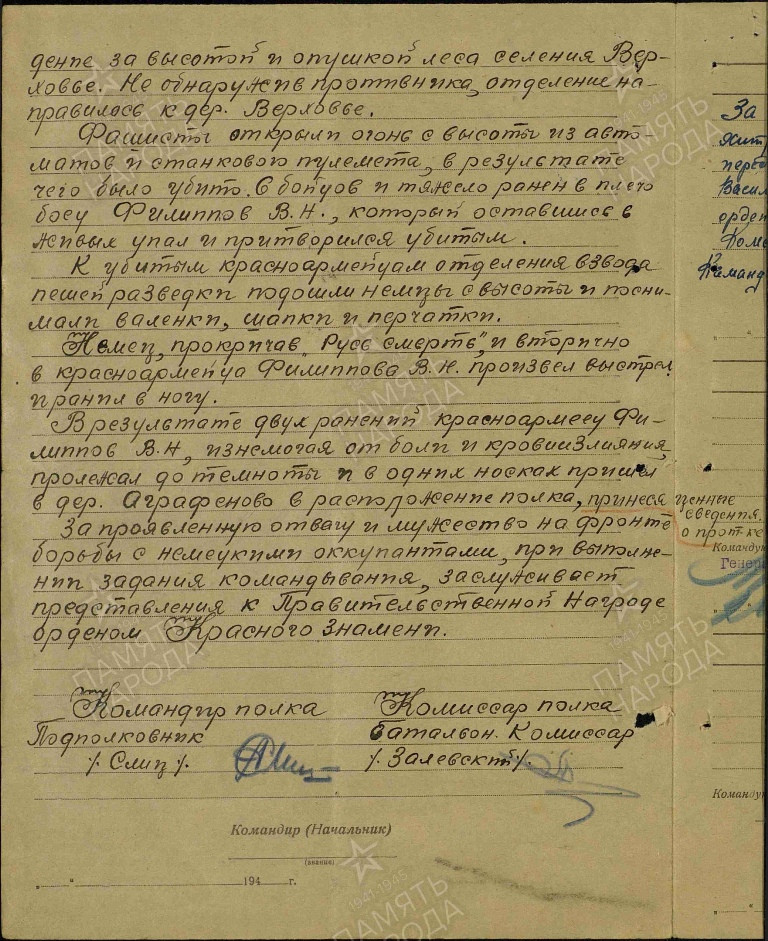 дение за высотой и опушкой леса селения Вер-
ховье. Не обнаружив противника, отделение на-
правилось к дер. Верховье.
Фашисты открыли огонь с высоты из авто-
матов и станкового пулемета, в результате
чего было убито 6 бойцов и тяжело ранен в плечо
боец Филиппов В.Н., который оставшись в
живых упал и притворился убитым.
К убитым красноармейцам отделения взвода
пешей разведки подошли немцы с высоты и посни-
мали валенки, шапки и перчатки.
Немец, прокричав „Русь смерть", и вторично
в красноармейца Филиппова В.Н. произвел выстрел
и ранил в ногу.
В результате двух ранений красноармеец Фи-
липпов В.Н, изнемогая от боли и кровиизлияния,
пролежал до темноты и в одних носках пришел
в дер. Аграфеново в расположение полка, принеся ценные
сведения
о прот-ке
За проявленную отвагу и мужество на фронте
борьбы с немецкими оккупантами, при выполне-
нии задания командывания, заслуживает
представления к Правительственной Награде
орденом Красного Знамени.
Командир полка
Подполковник
/. Слиц /.
Комиссар полка
Батальон. Комиссар
/. Залевский /.
Командир (Начальник)
(звание)
„ " 194 г.
За
жит
перв
Васил
орден
Ком
Команд
Команду
Генер
Команду
ПАМЯТЬ НАРОДА
1941-1945